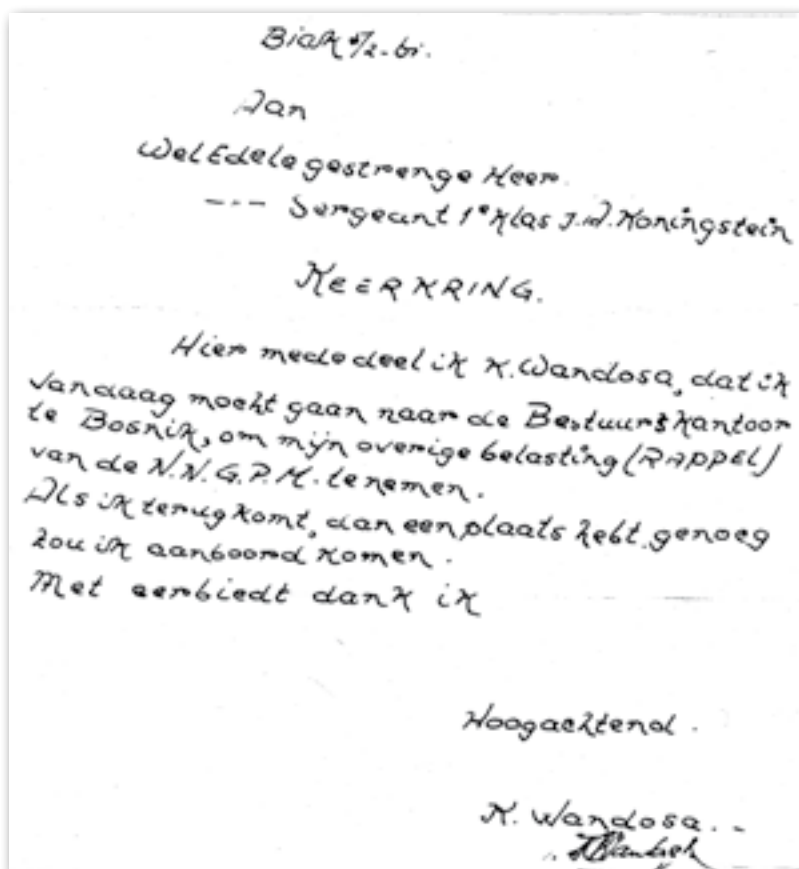 Biak /2-61.
Aan
WelEdelegestrenge Heer.
--- Sergeant 1e klas J.W. Koningstein
KEERKRING.
Hier mededeel ik K. Wandosa, dat ik
vandaag mocht gaan naar de Bestuurskantoor
te Bosnik, om mijn overige belasting (RAPPEL)
van de N.N.G.P.M. te nemen.
Als ik terug komt, dan een plaats hebt genoeg
zou ik aanboord komen.
Met eerbiedt dank ik
Hoogachtend.
K. Wandosa..-